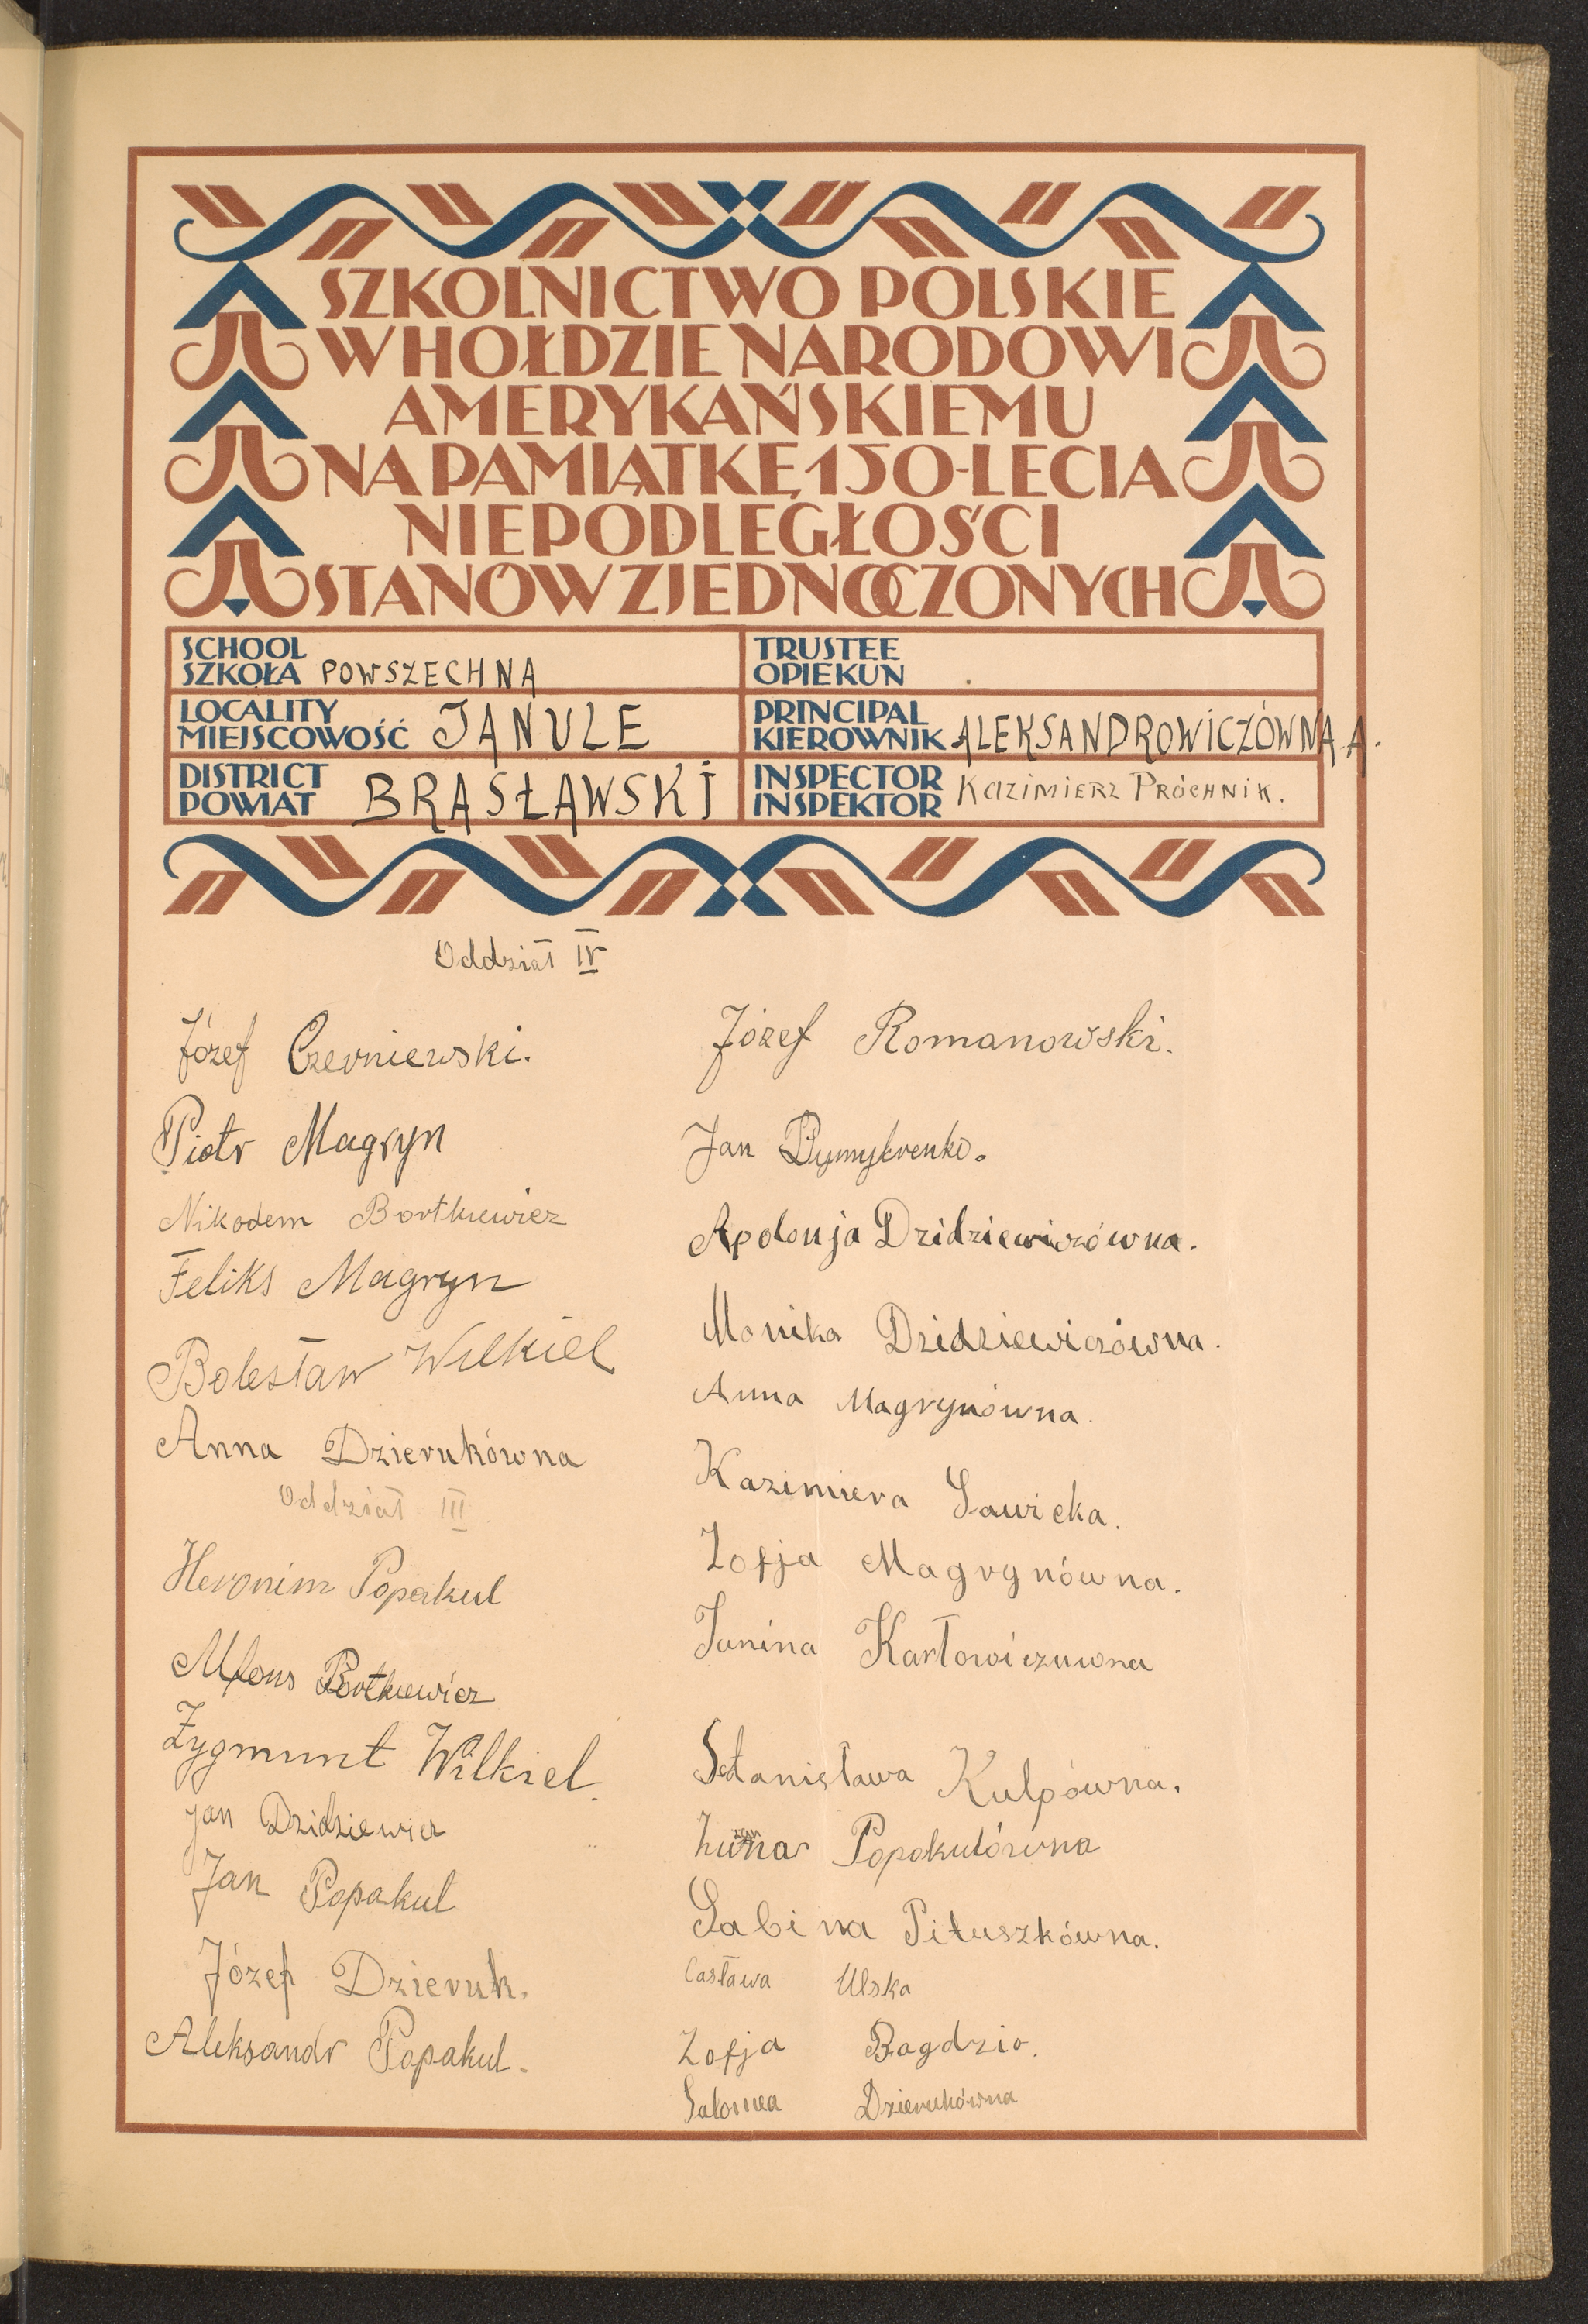 SZKOLNICTWO POLSKIE
W HOŁDZIE NARODOWI
AMERYKAŃSKIEMU
NA PAMIĄTKĘ 150-LECIA
NIEPODLEGŁOŚCI
STANÓW ZJEDNOCZONYCH
SCHOOL
SZKOŁA POWSZECHNA
TRUSTEE
OPIEKUN
LOCALITY
MIEJSCOWOŚĆ JANULE
PRINCIPAL
KIEROWNIK ALEKSANDROWICZÓWNA A.
DISTRICT
POWIAT BRASŁAWSKI
INSPECTOR
INSPEKTOR KAZIMIERZ PRÓCHNIK.
Oddział IV
Józef Czerniewski.
Piotr Magryn
Nikodem Bortkiewicz
Feliks Magryn
Bolesław Wilkiel
Anna Dzierukówna
Oddział III
Heronim Popakul
Alfons Bortkiewicz
Zygmunt Wilkiel.
Jan Dzidziewicz
Jan Popakul
Józef Dzieruk.
Aleksandr Popakul.
Józef Romanowski.
Jan
Apolonja Dzidziewiczówna.
Monika Dzidziewiczówna.
Anna Magrynówna.
Kazimiera Sawicka.
Zofja Magrynówna.
Janina Karłowiczuwna
Stanisława Kulpówna.
Popakulówna
Sabina Pituszkówna.
Casława Ulska
Zofja Bagdzio.
Salomea Dzierukówna